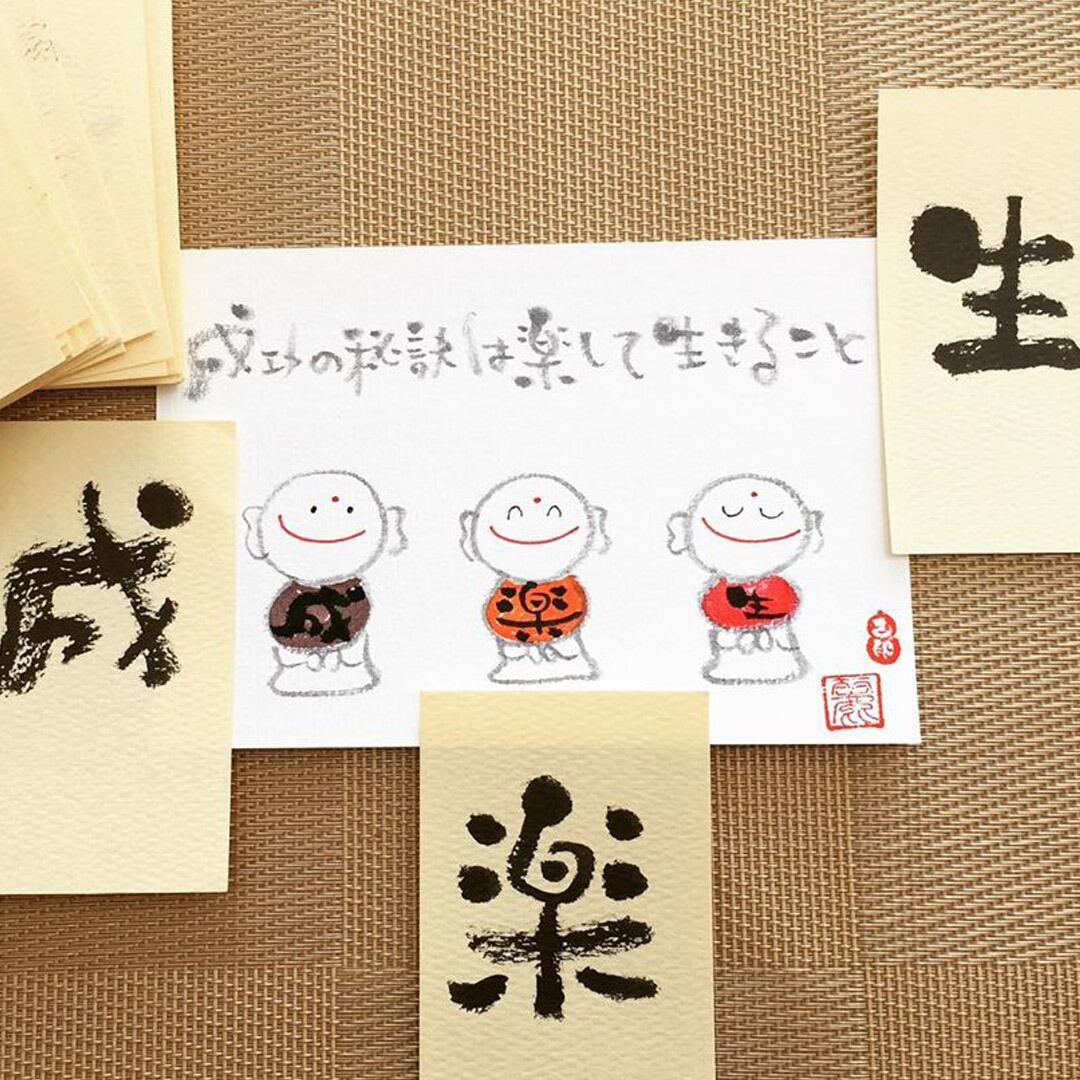 成功の秘訣は楽して生きること
生
成
成
楽
生
楽